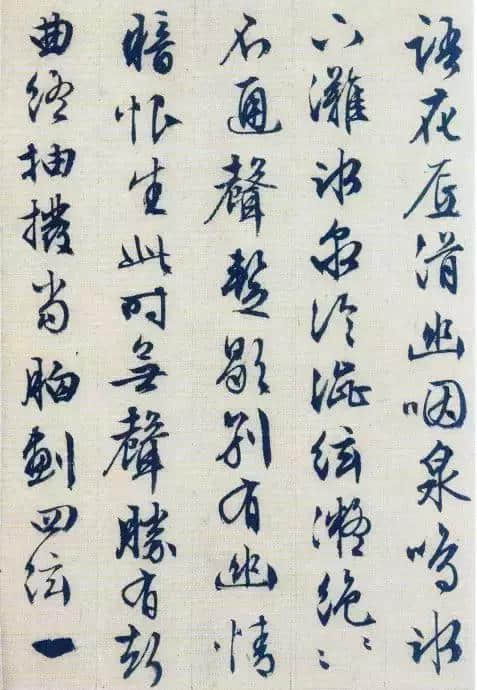 語花底滑幽咽泉鳴冰
下灘冰泉冷澀絃凝絕〻〻
不通聲暫歇別有幽情
暗恨生此时無聲勝有聲
曲終抽撥當胸劃四絃一